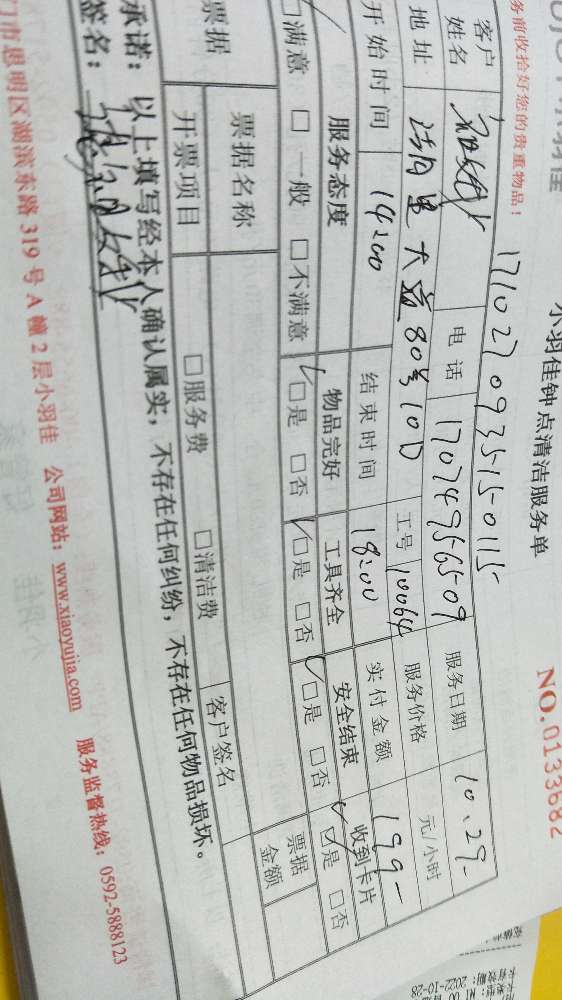 小羽佳
小羽佳钟点清洁服务单
NO.0133682
务前收拾好您的贵重物品！
1710270935150115
客户姓名 电话 17074956509 服务日期 10.29-
地址 大益80号10D 工号 10064 服务价格 元/小时
开始时间 14:00 结束时间 18:00 实付金额 199-
服务态度 物品完好 工具齐全 安全结束 收到卡片
□满意 □一般 □不满意 □是 □否 □是 □否 □是 □否 □是 □否
票据 票据名称 客户签名 票据金额
开票项目 □服务费 □清洁费
承诺：以上填写经本人确认属实，不存在任何纠纷，不存在任何物品损坏。
签名：
门市思明区湖滨东路 319 号 A 幢 2 层小羽佳 公司网站：www.xiaoyujia.com 服务监督热线：0592-5888123
卡有效期：2022-10-28